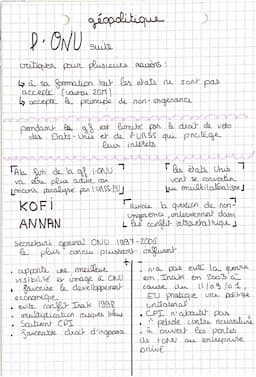 géopolitique
L'ONU suite
critiquer pour plusieurs raisons :
↳ à sa formation tout les états ne sont pas
accepté
↳ accepte le principe de non-ingérence
pendant la gf est limité par le droit de veto
des États-Unis et de l'URSS qui privilège
leurs intérêts
A la fin de la gf l'ONU
va être plus active car
moins paralysé par l'URSS-EU
les états Unis
vont se convertir
au multilatéralisme
KOFI
ANNAN
avoir la question de non-
ingérence, interviennent dans
les conflit intraétatique
Secrétaire général ONU 1997-2006
le plus connu puissant influent
+
-
• apporte une meilleure
visibilité et image à ONU
• favorise le développement
économique
• évite conflit Irak 1998
• multiplication casques bleu
• Soutient CPI
• favorable droit d'ingérence
• n'a pas evité la guerre
en Irak en 2003 à
cause du 11/09/01,
EU pratique une politique
unilatéral
• CPI n'aboutit pas
• pétrole contre nourriture
• à ouvert les portes
de l'ONU au entreprise
privé